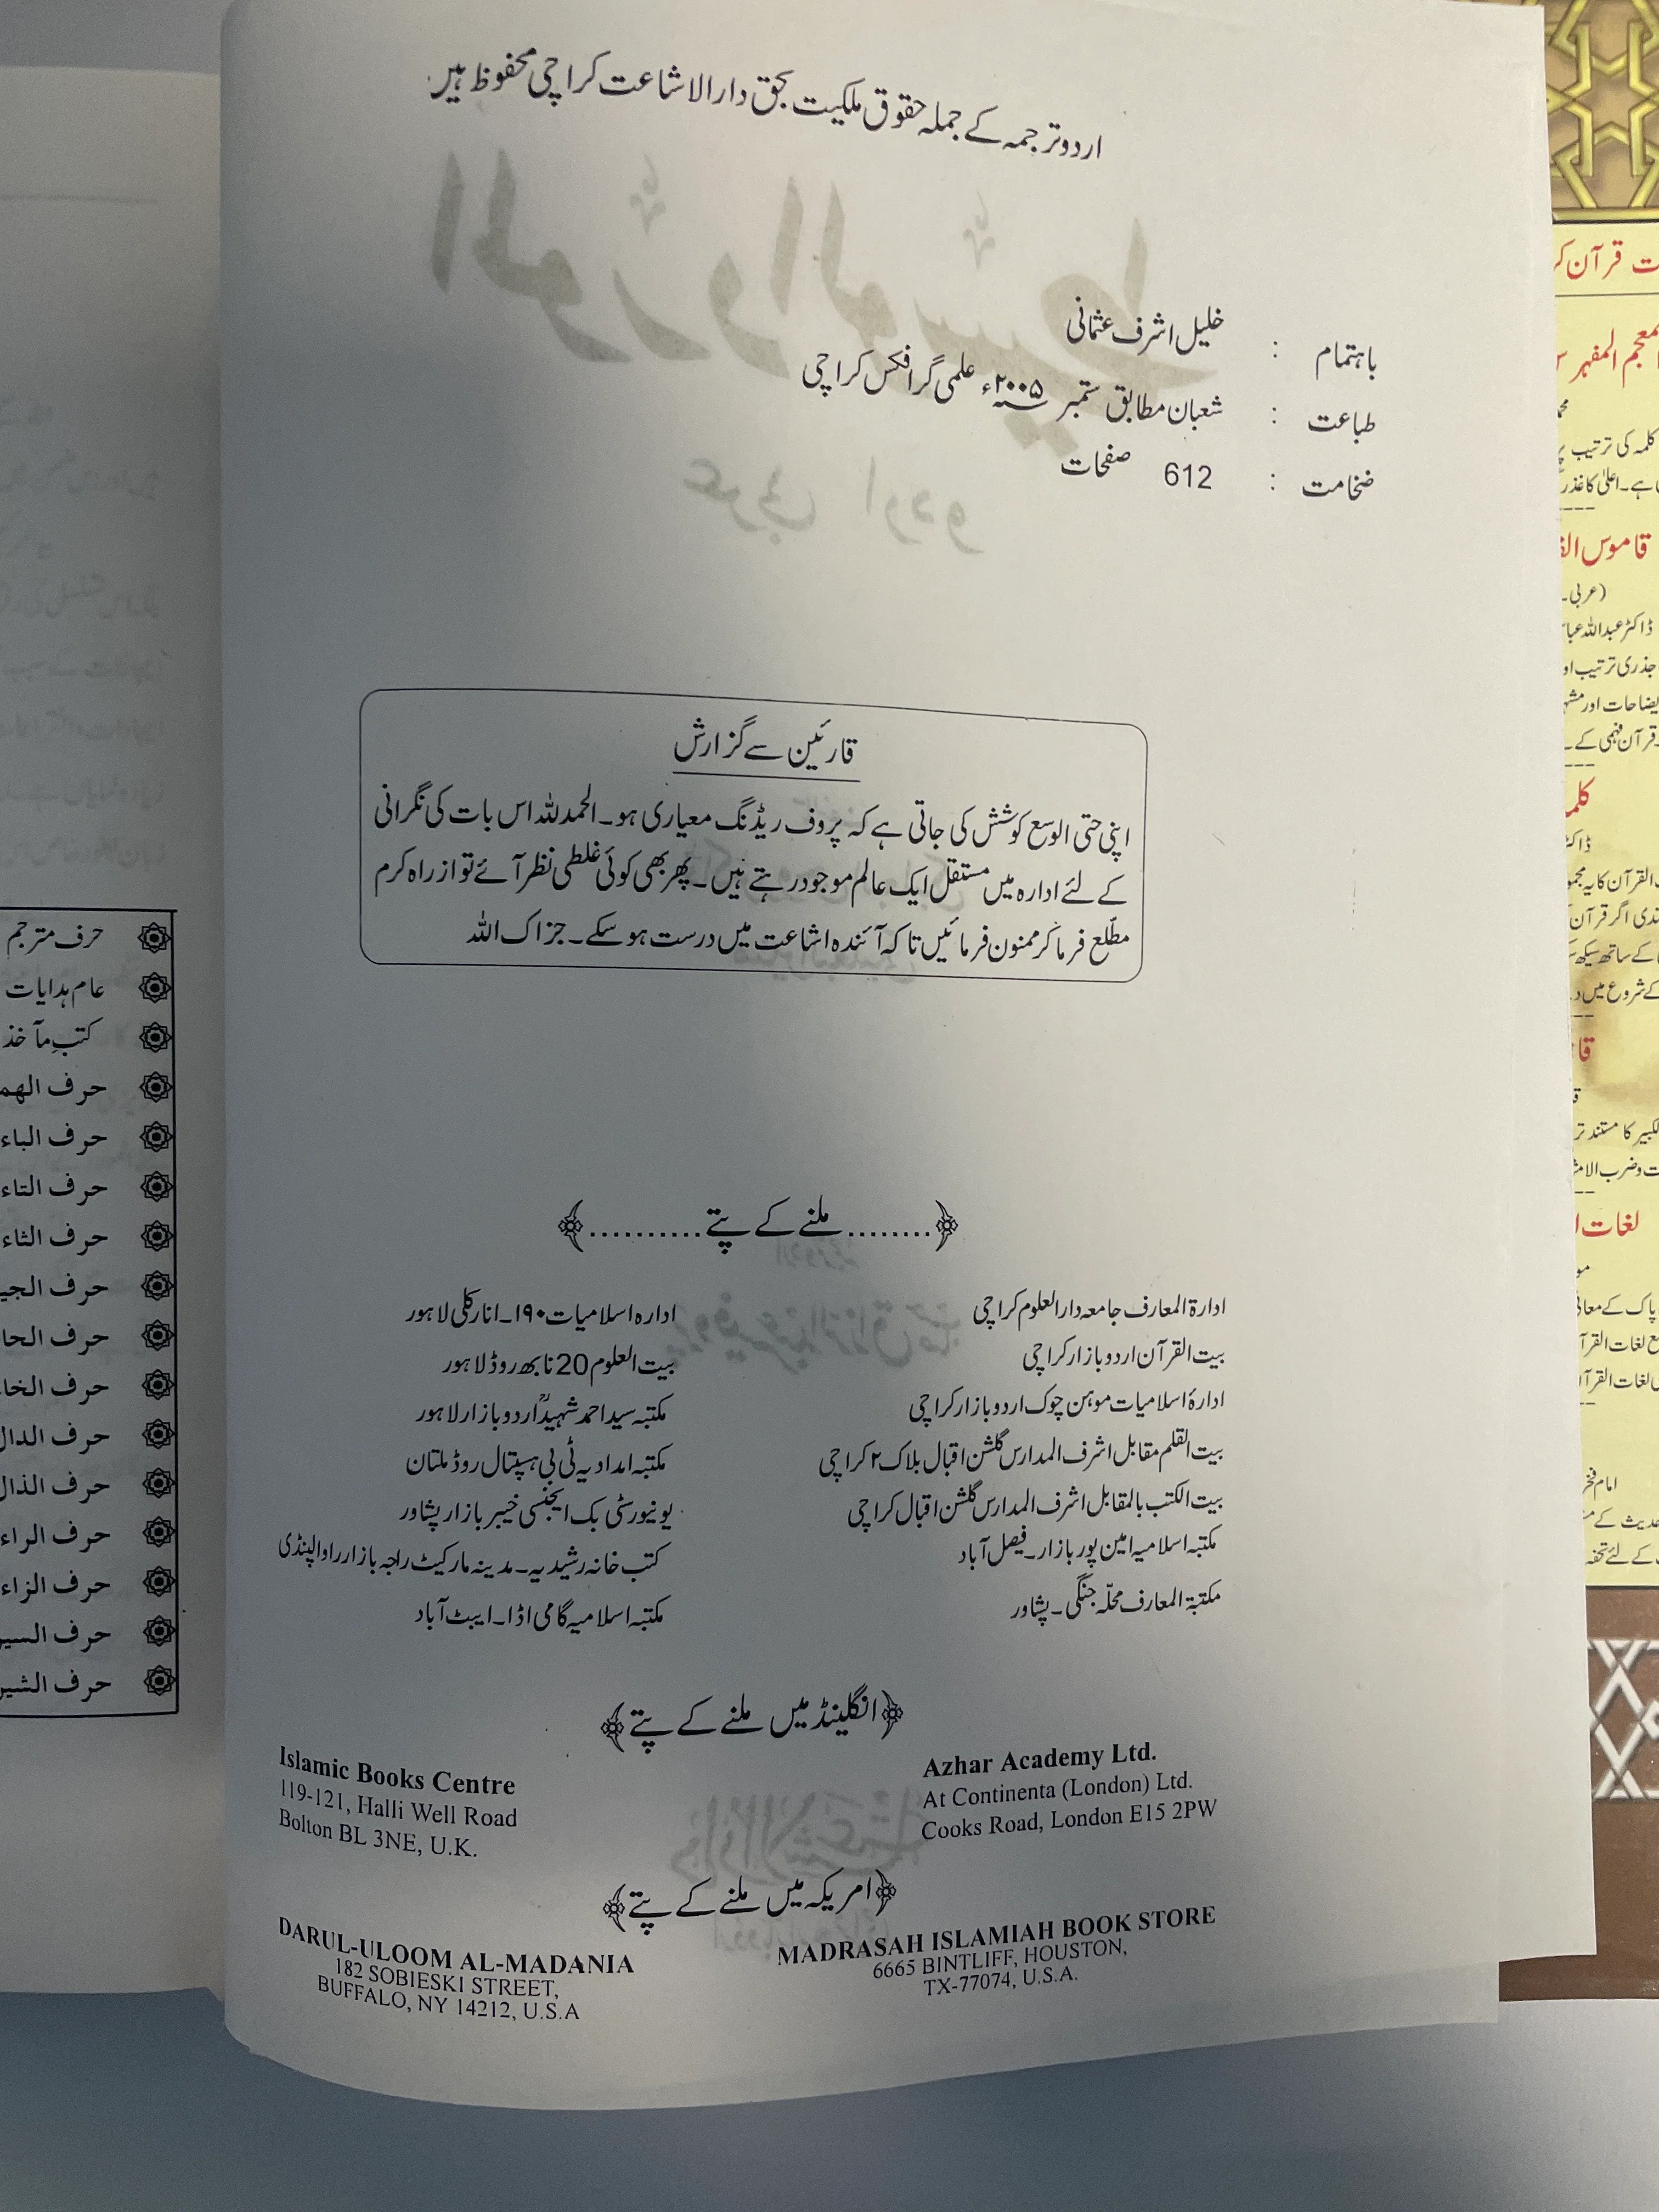 اردو ترجمہ کے جملہ حقوق ملکیت بحق دارالاشاعت کراچی محفوظ ہیں
باہتمام : خلیل اشرف عثمانی
طباعت : شعبان مطابق ستمبر ۲۰۰۵ء علمی گرافکس کراچی
ضخامت : 612 صفحات
قارئین سے گزارش
اپنی حتی الوسع کوشش کی جاتی ہے کہ پروف ریڈنگ معیاری ہو۔ الحمدللہ اس بات کی نگرانی
کے لئے ادارہ میں مستقل ایک عالم موجود رہتے ہیں۔ پھر بھی کوئی غلطی نظر آئے تو از راہ کرم
مطلع فرما کر ممنون فرمائیں تاکہ آئندہ اشاعت میں درست ہو سکے۔ جزاک اللہ
﴿........ملنے کے پتے..........﴾
ادارۃ المعارف جامعہ دارالعلوم کراچی
بیت القرآن اردو بازار کراچی
ادارۂ اسلامیات موہن چوک اردو بازار کراچی
بیت القلم مقابل اشرف المدارس گلشن اقبال بلاک ۲ کراچی
بیت الکتب بالمقابل اشرف المدارس گلشن اقبال کراچی
مکتبہ اسلامیہ امین پور بازار۔ فیصل آباد
مکتبۃ المعارف محلّہ جنگی۔ پشاور
ادارہ اسلامیات ۱۹۰۔ انارکلی لاہور
بیت العلوم 20 نابھ روڈ لاہور
مکتبہ سید احمد شہیدؒ اردو بازار لاہور
مکتبہ امدادیہ ٹی بی ہسپتال روڈ ملتان
یونیورسٹی بک ایجنسی خیبر بازار پشاور
کتب خانہ رشیدیہ۔ مدینہ مارکیٹ راجہ بازار راولپنڈی
مکتبہ اسلامیہ گامی اڈا۔ ایبٹ آباد
﴿انگلینڈ میں ملنے کے پتے﴾
Islamic Books Centre
119-121, Halli Well Road
Bolton BL 3NE, U.K.
Azhar Academy Ltd.
At Continenta (London) Ltd.
Cooks Road, London E15 2PW
﴿امریکہ میں ملنے کے پتے﴾
DARUL-ULOOM AL-MADANIA
182 SOBIESKI STREET,
BUFFALO, NY 14212, U.S.A
MADRASAH ISLAMIAH BOOK STORE
6665 BINTLIFF, HOUSTON,
TX-77074, U.S.A.
حرف مترجم
عام ہدایات
کتبِ مآخذ
حرف الهم
حرف الباء
حرف التاء
حرف الثاء
حرف الجي
حرف الحا
حرف الخا
حرف الدال
حرف الذال
حرف الراء
حرف الزاء
حرف السي
حرف الشي